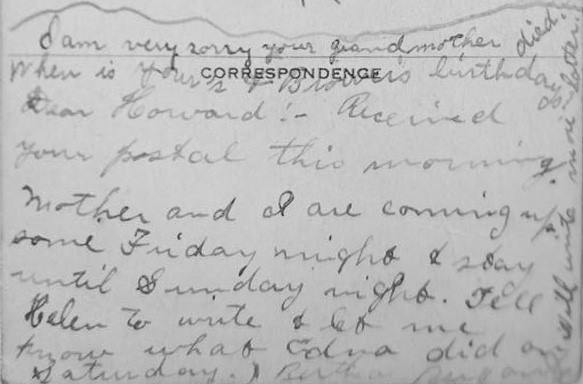 I am very sorry your grandmother died.
When is Your's & Brownie's birthday
CORRESPONDENCE
Dear Howard:- Received
your postal this morning.
Mother and I are coming up
some Friday night & stay
until Sunday night. Tell
Helen to write & let me
know what Edna did on
Saturday.) Bertha
Will write more letter